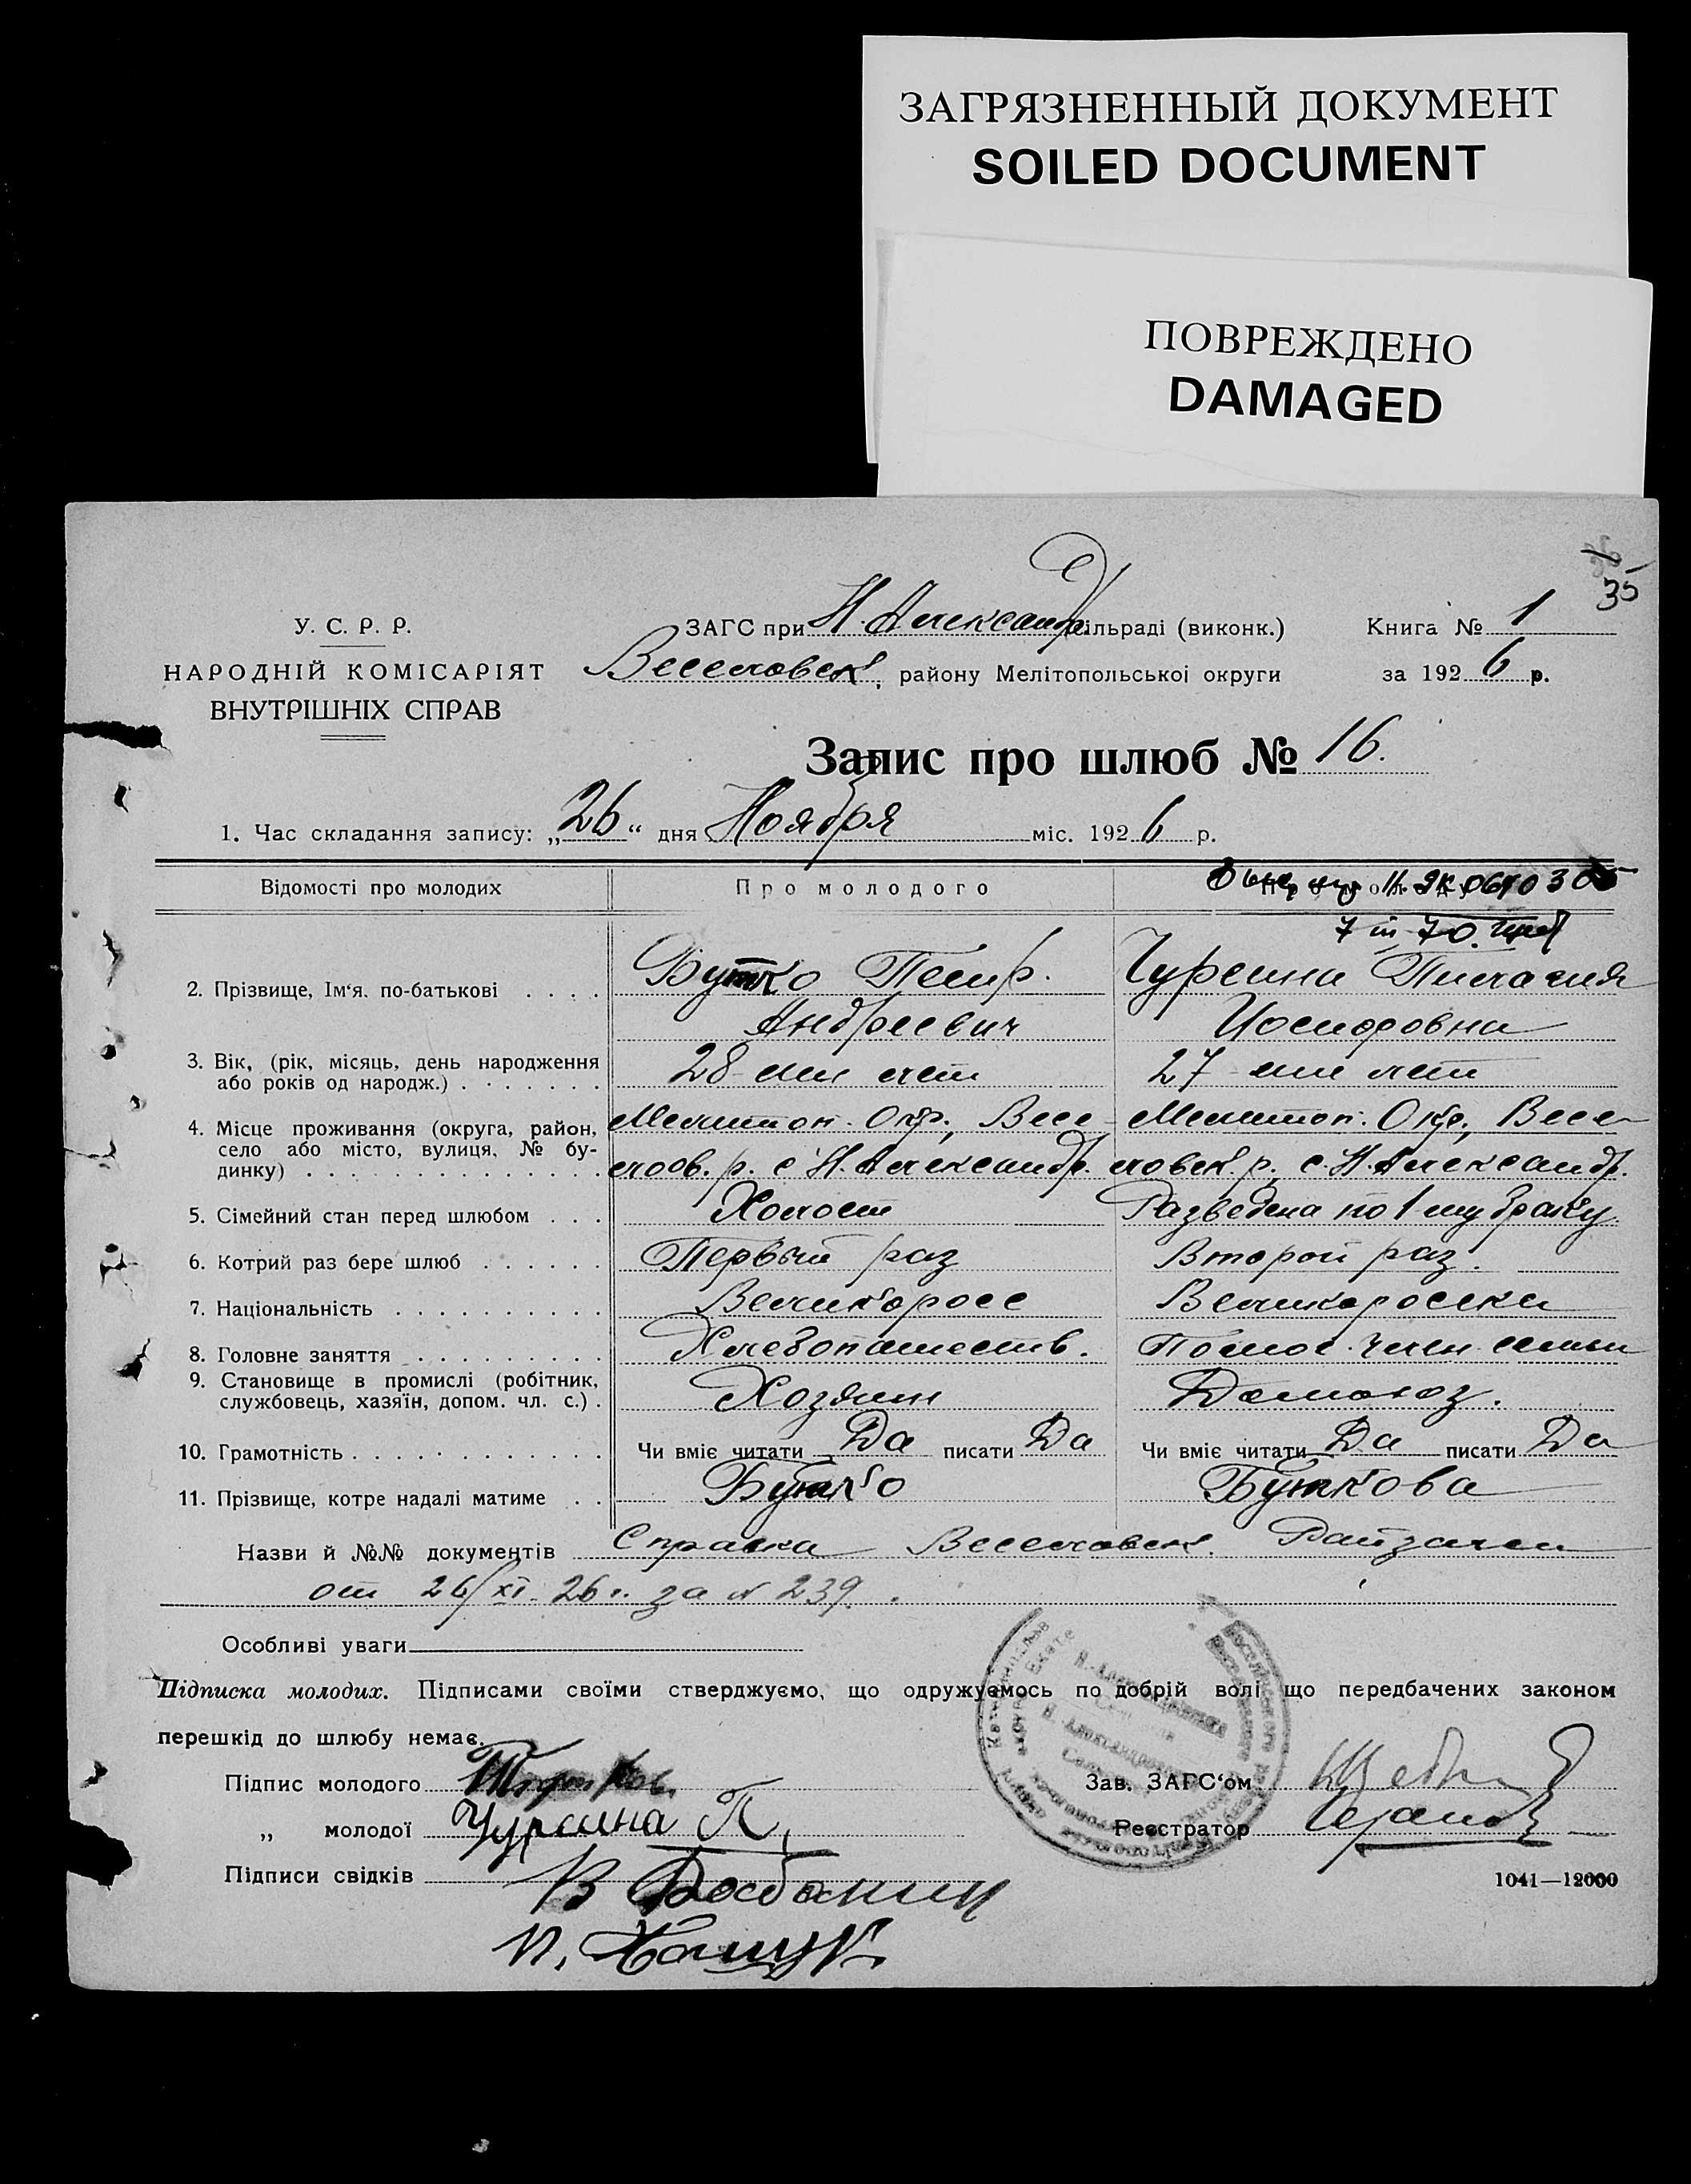 ЗАГРЯЗНЕННЫЙ ДОКУМЕНТ
SOILED DOCUMENT
ПОВРЕЖДЕНО
DAMAGED
35
У. С. Р. Р.
НАРОДНІЙ КОМІСАРІЯТ
ВНУТРІШНІХ СПРАВ
ЗАГС при Н. Александр. сільраді (виконк.)
Веселовск. району Мелітопольської округи
Книга № 1
за 1926 р.
Запис про шлюб № 16.
1. Час складання запису: „26“ дня Ноября міс. 1926 р.
Відомості про молодих
Про молодого
2. Прізвище, Ім'я, по-батькові . . . . Бутко Петр. Чурсина Пилагия
Андреевич Иосифовна
3. Вік, (рік, місяць, день народження або років од народж.) . . . . . . . 28 ми лет 27 ми лет
4. Місце проживання (округа, район, Мелитоп. Окр., Весе- Мелитоп. Окр., Весе-
село або місто, вулиця, № бу-
динку) . . . . . . . . . . . . . . лов. р. с Н. Александр. ловск. р. с. Н. Александр.
5. Сімейний стан перед шлюбом . . . Холост Разведена по 1 му браку.
6. Котрий раз бере шлюб . . . . . . Первый раз Второй раз.
7. Національність . . . . . . . . . . Великоросс Великоросска
8. Головне заняття . . . . . . . . . Хлебопашеств. Помог. член семьи
9. Становище в промислі (робітник,
службовець, хазяїн, допом. чл. с.) . Хозяин Домохоз.
10. Грамотність . . . . . . . . . . . . Чи вміє читати Да писати Да Чи вміє читати Да писати Да
11. Прізвище, котре надалі матиме . . Бутко Буткова
Назви й №№ документів Справка Веселовск. Райзагса
от 26/XI. 26 г. за № 239.
Особливі уваги
Підписка молодих. Підписами своїми стверджуємо, що одружуємось по добрій волі що передбачених законом
перешкід до шлюбу немає.
Підпис молодого
Зав. ЗАГС'ом
„ молодої Чурсина П.
Реєстратор
Підписи свідків
1041—12000